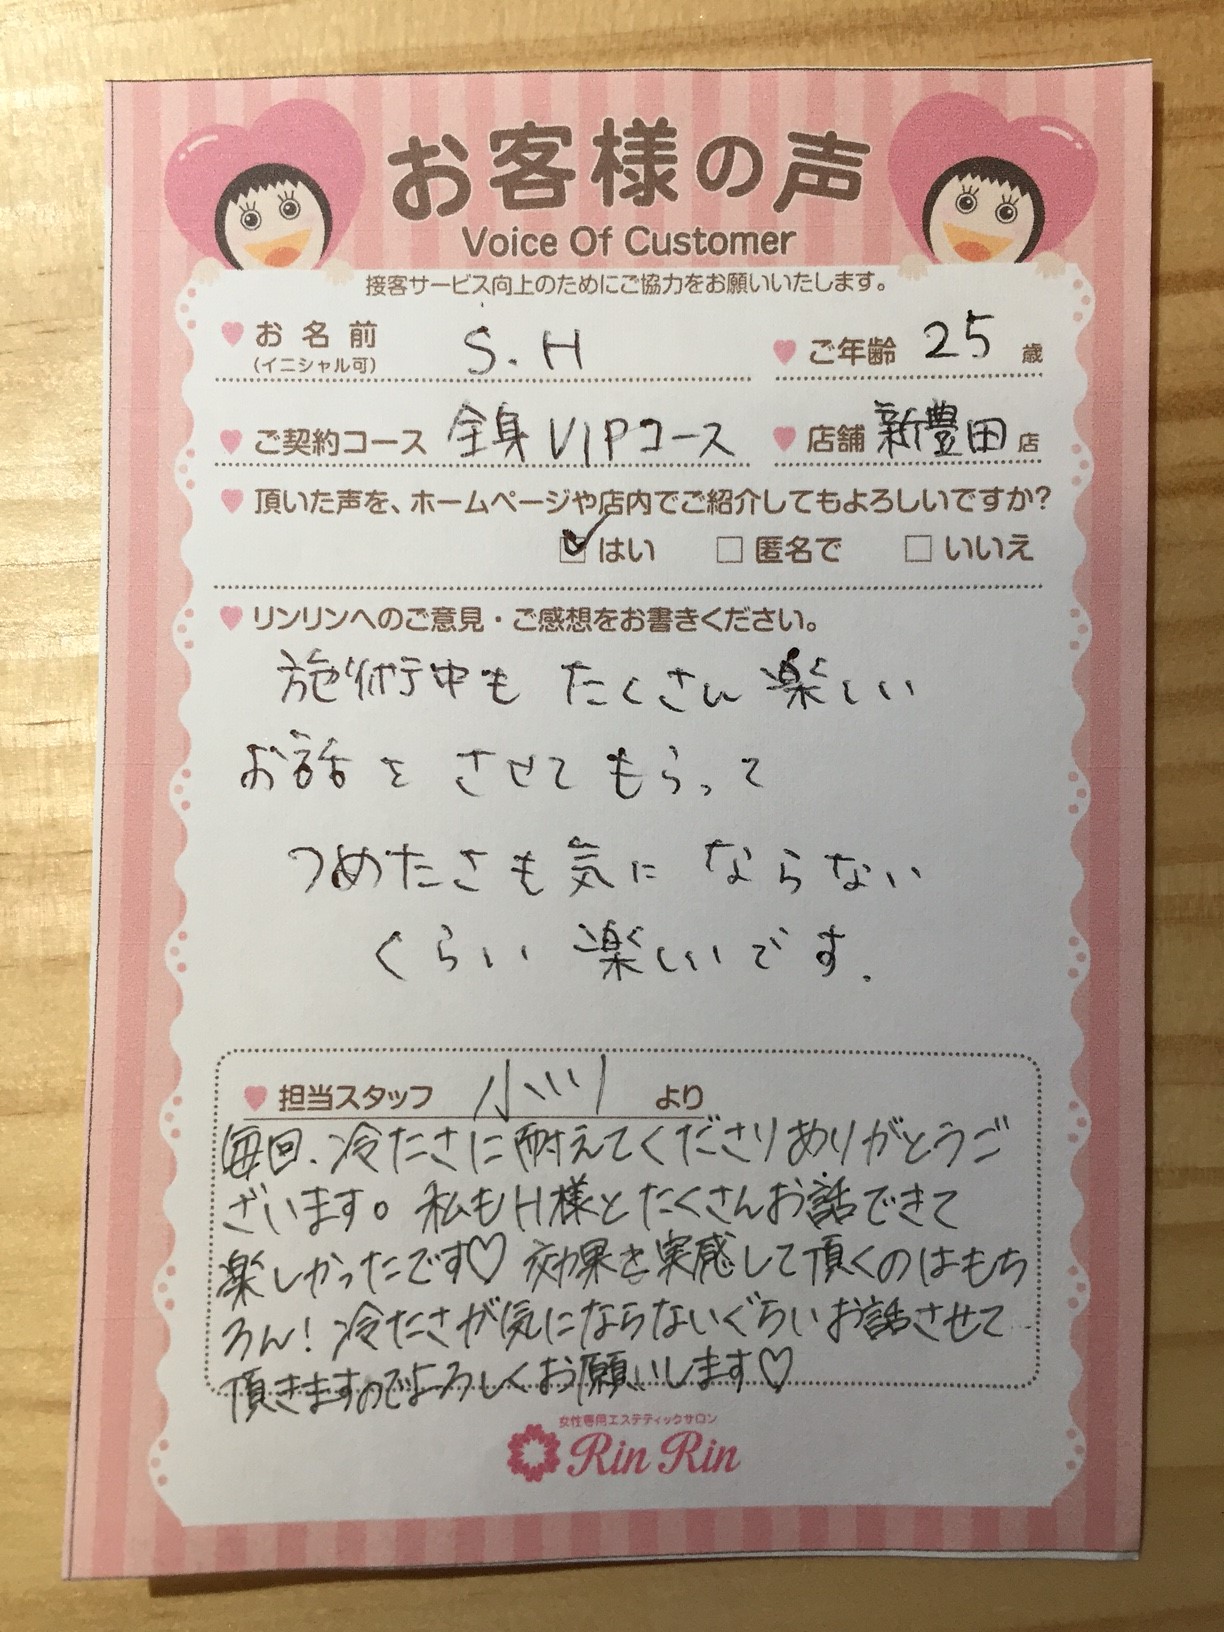 お客様の声
Voice Of Customer
接客サービス向上のためにご協力をお願いいたします。
お名前 S.H ご年齢 25 歳
(イニシャル可)
ご契約コース 全身VIPコース 店舗 新豊田 店
頂いた声を、ホームページや店内でご紹介してもよろしいですか?
はい 匿名で いいえ
リンリンへのご意見・ご感想をお書きください。
施術中も たくさん 楽しい
お話を させて もらって
つめたさも気に ならない
くらい 楽しいです.
担当スタッフ 小川 より
毎回、冷たさに耐えてくださりありがとうご
ざいます。私もH様とたくさんお話できて
楽しかったです♡ 効果を実感して頂くのはもち
ろん!冷たさが気にならないぐらいお話させて
頂きますのでよろしくお願いします♡
女性専用エステティックサロン
Rin Rin